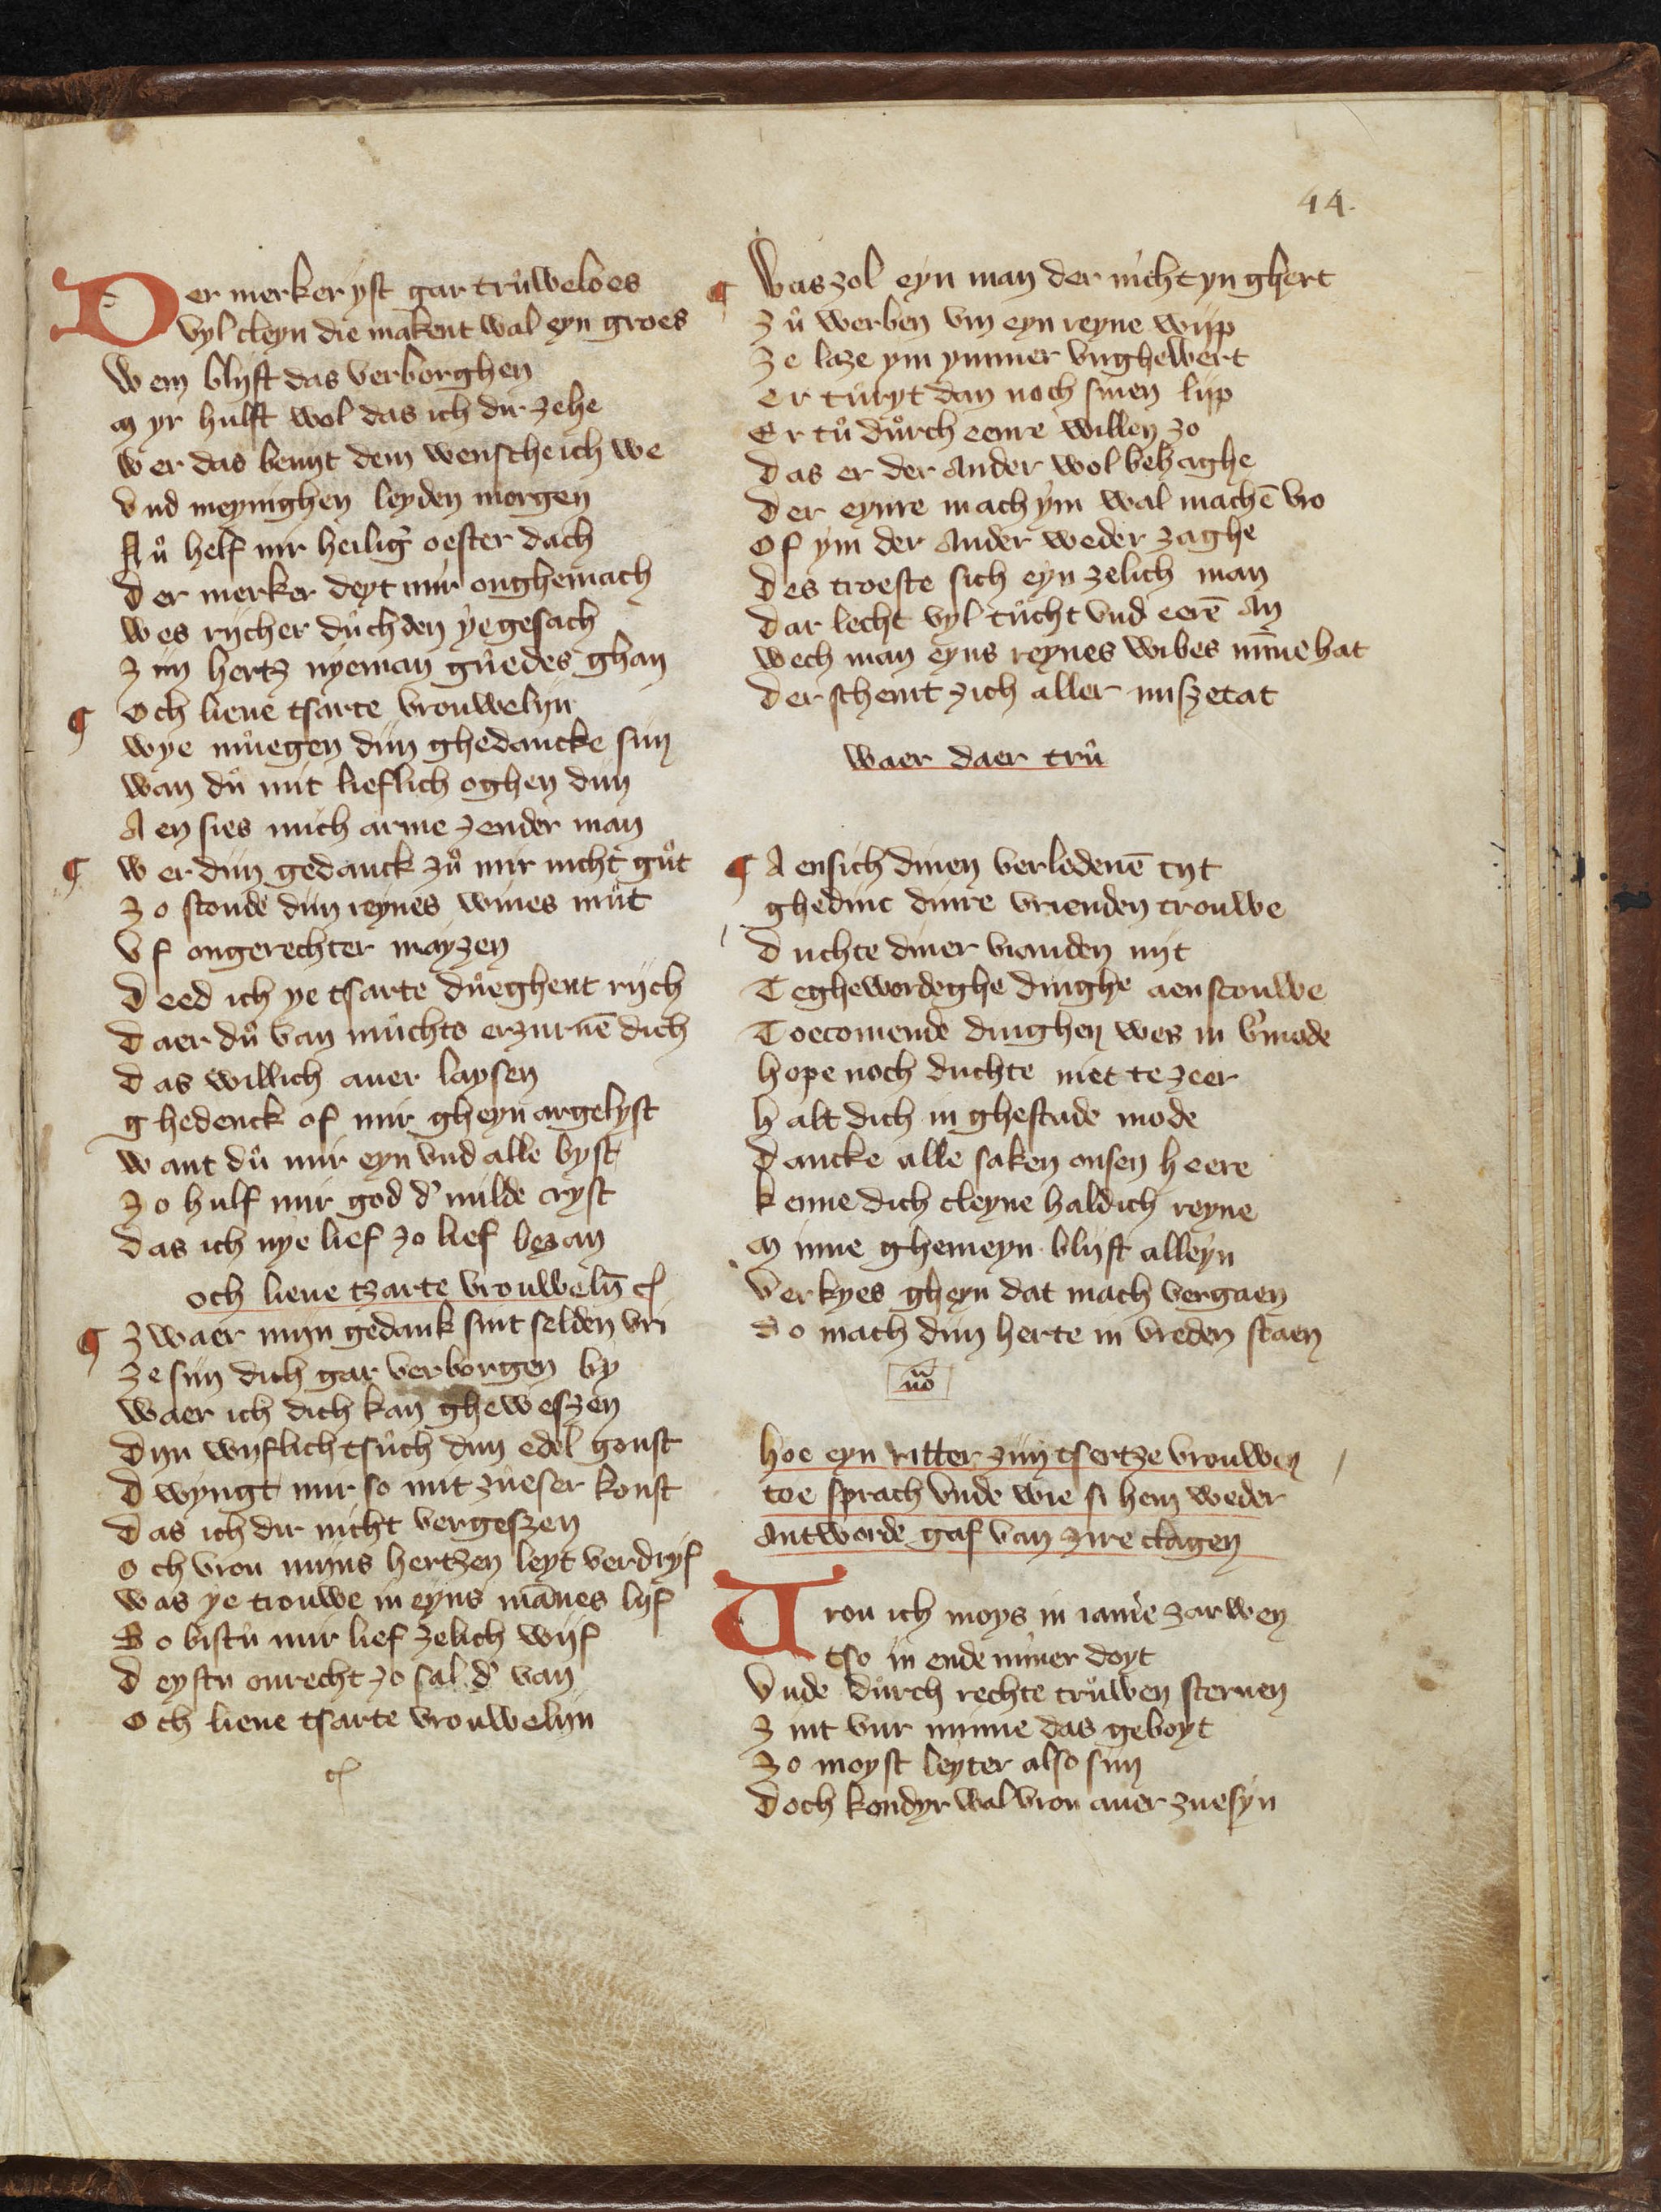 44.
Der merker yst gar trůweloes
vyl cleyn die makent wal eyn groes
Wem blijft das verborghen
Myr hulft wol das ich dir zehe
Wer das benijt dem wensche ich we
Vnd meynighen leyden morgen
Nů helf mir heilig' oester dach
Der merker deyt mir onghemach
Wes rijcher důchden ye gesach
Zijn hertz nyeman gůedes ghan
¶ Och lieue tsarte vrouwelijn
Wye můegen dijn ghedancke sijn
Wan dů mit lieflich oghen dijn
Aen sies mich arme zender man
¶ Wer dijn gedanck zů mir nicht gůt
Zo stonde dijn reynes wiues můt
Vf ongerechter mayzen
Deed ich ye tsarte důeghent rijch
Daer dů van můchts erzurnē dich
Das willich auer laysen
Ghedenck of mir gheyn argelyst
Want dů mir eyn vnd alle byst
Zo hulf mir god d' milde cryst
Das ich nye lief zo lief beẓan
Och lieue tzarte vrouwelij̄ &c
¶ Zwaer mijn gedank sint selden vri
Ze sijn dich gar verborgen by
Waer ich dich kan gheweszen
Dijn wijflich tsůch dijn edel gonst
Dwyngt mir so mit zůeser konst
Das ich dir nicht vergeszen
Och vrou mijns hertzen leyt verdrijf
Was ye trouwe in eyns mānes lijf
So bistů mir lief zelich wijf
Deystu onrecht zo sal d' van
Och lieue tsarte vrouwelijn
&c
¶ Was zol eyn man der nicht yn ghert
Zů werben vm eyn reyne wijp
Ze laze ym ymmer vnghewert
Er tůryt dan noch sinen lijp
Er tů důrch eenre willen zo
Das er der ander wol behaghe
Der eynre mach ẏm wal machē vro
Of ym der ander weder zaghe
Des troeste sich eyn zelich man
Dar lecht vyl tůcht vnd eerē an
Wech man eyns reynes wibes mīne hat
Der schemt zich aller miszetat
Waer daer trů
¶ Aensich dinen verledenē tijt
Ghedinc dinre vrienden trouwe
Duchte diner vianden nijt
Teghewordeghe dinghe aenscouwe
Toecomende dinghen wes in v'mode
Hope noch duchte niet te zeer
Halt dich in ghestade mode
Dancke alle saken onsen heere
Kenne dich cleyne haldich reyne
Minne ghemeyn blijft alleyn
Verkyes gheyn dat mach vergaen
So mach dijn herte in vreden staen
Hoe eyn ritter zijn tsertze vrouwen
toe sprach vnde wie si hem weder
antworde gaf van zire clagen
Vrou ich moys in iam'e zarwen
tso in ende mīner doyt
Vnde důrch rechte trůwen steruen
Zint vur minne das geboyt
Zo moyst leyter also sijn
Doch kondyr wal vrou auer zuesyn